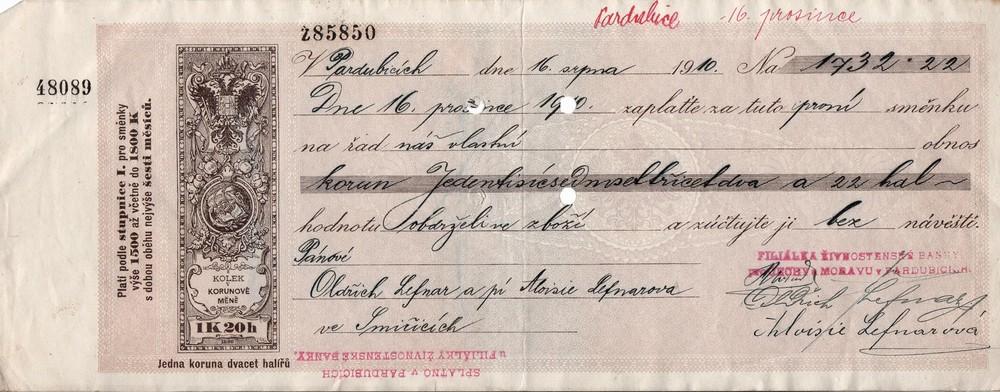 Pardubice 16. prosince
285850
48089
Platí podle stupnice I. pro směnky
výše 1500 až včetně do 1800 K
s dobou oběhu nejvýše šesti měsíců.
KOLEK
V
KORUNOVÉ
MĚNĚ
1K20h
Jedna koruna dvacet haléřů
V Pardubicích dne 16. srpna 1910. Na 1732·22
Dne 16. prosince 1910. zaplaťte za tuto první směnku
na řad náš vlastní obnos
korun Jedentisícsedmsettřicetdva a 22 hal
hodnotu obdrželi ve zboží a zúčtujte ji bez návěští.
Pánové
Oldřich Lefnar a pí Aloisie Lefnarova
ve Smiřicích
FILIÁLKA ŽIVNOSTENSKÉ BANKY
MORAVU V PARDUBICÍCH.
Oldřich Lefnar
Aloisie Lefnarová
SPLATNO v PARDUBICÍCH
u FILIÁLKY ŽIVNOSTENSKÉ BANKY.